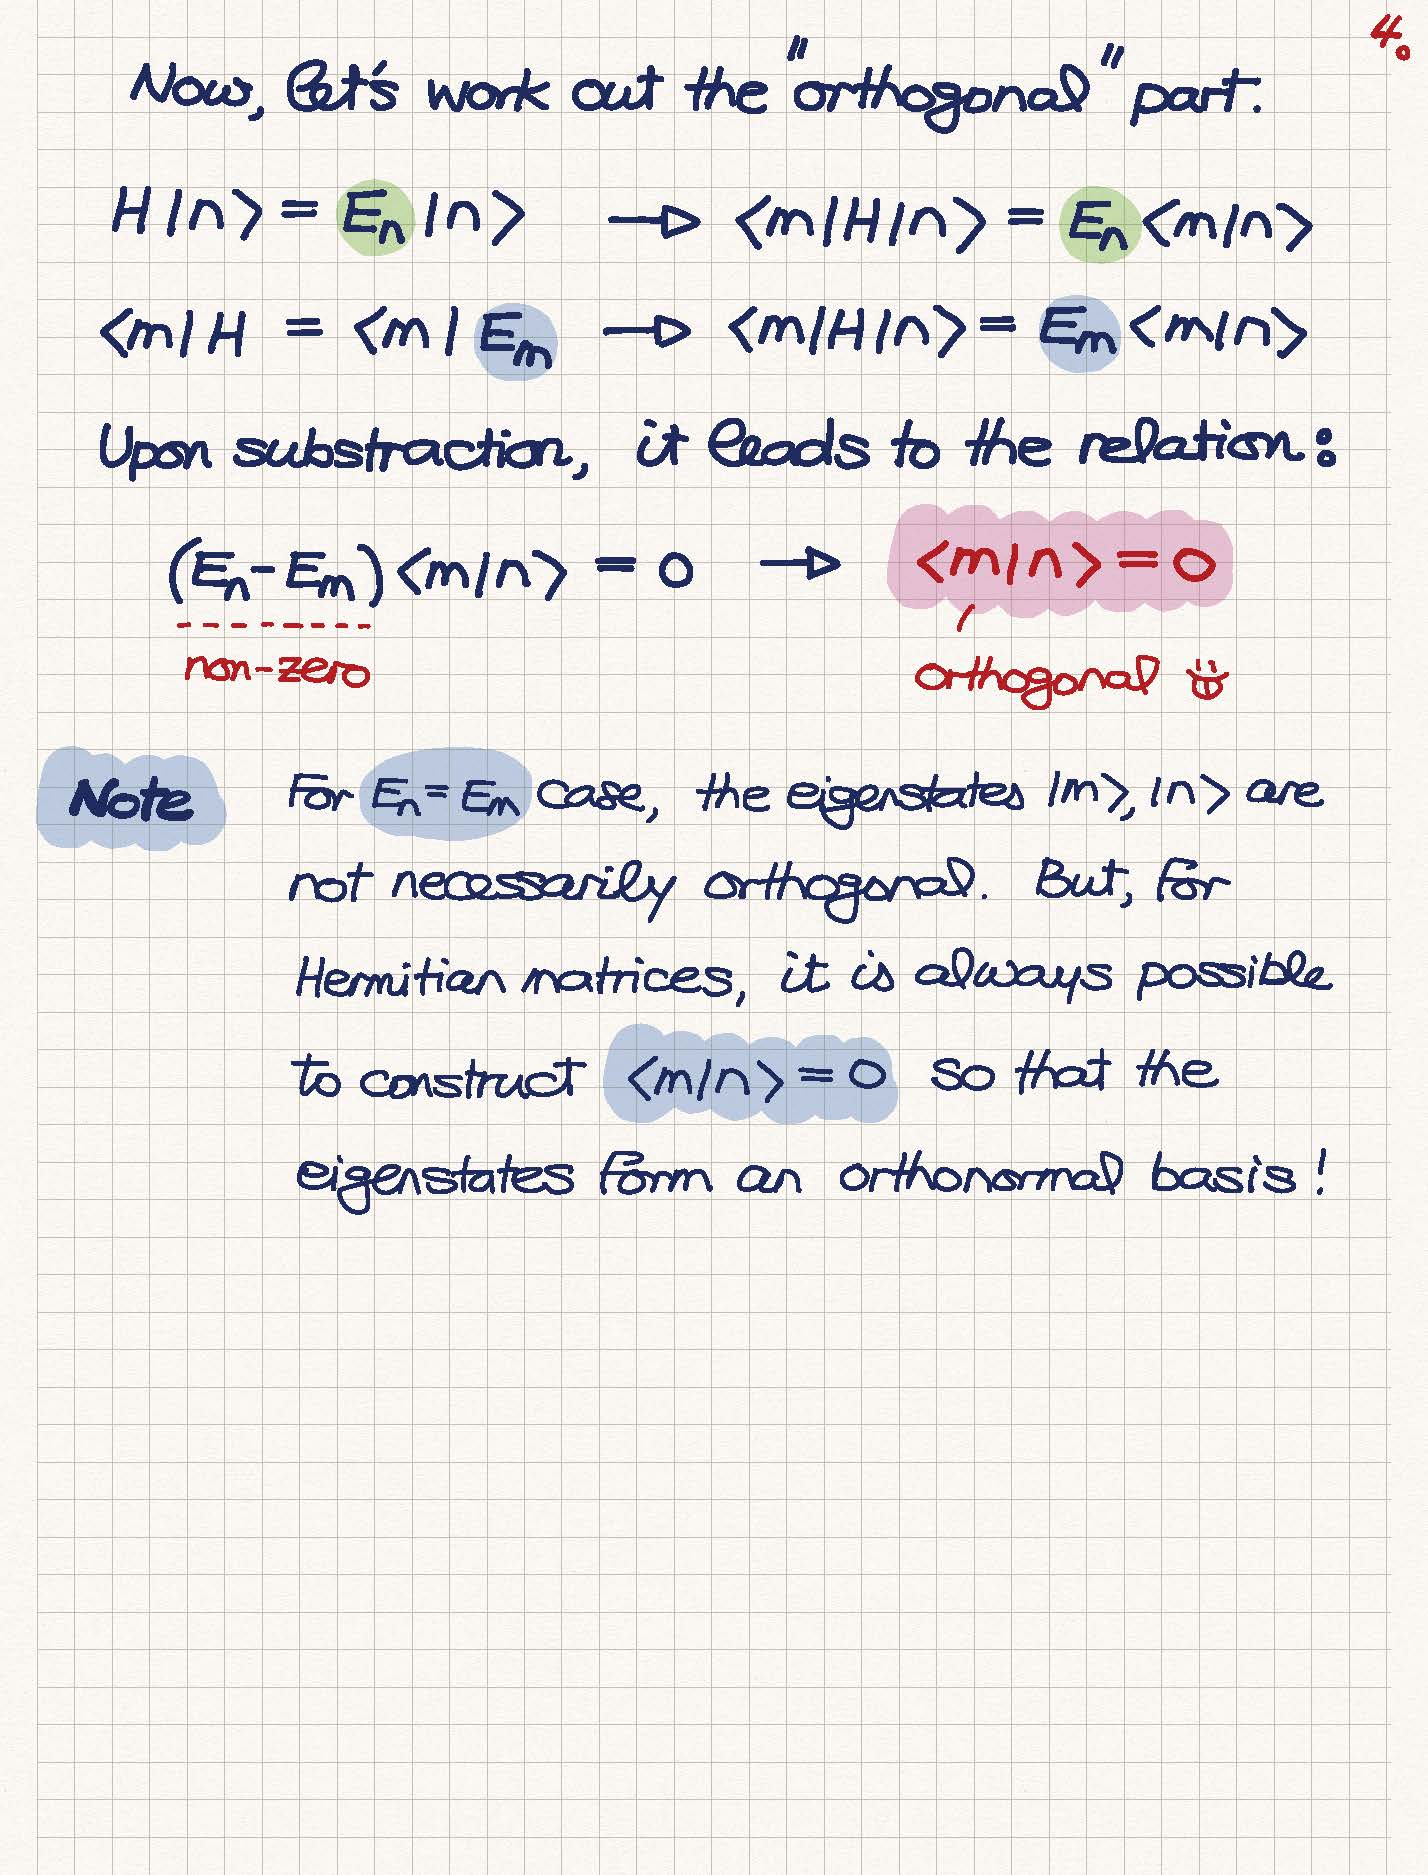 4.
Now, let's work out the "orthogonal" part.
H|n> = En|n> → <m|H|n> = En<m|n>
<m|H = <m|Em → <m|H|n> = Em<m|n>
Upon substraction, it leads to the relation:
(En-Em)<m|n> = 0 → <m|n> = 0
non-zero orthogonal
Note For En = Em case, the eigenstates |m>, |n> are
not necessarily orthogonal. But, for
Hermitian matrices, it is always possible
to construct <m|n> = 0 so that the
eigenstates form an orthonormal basis!